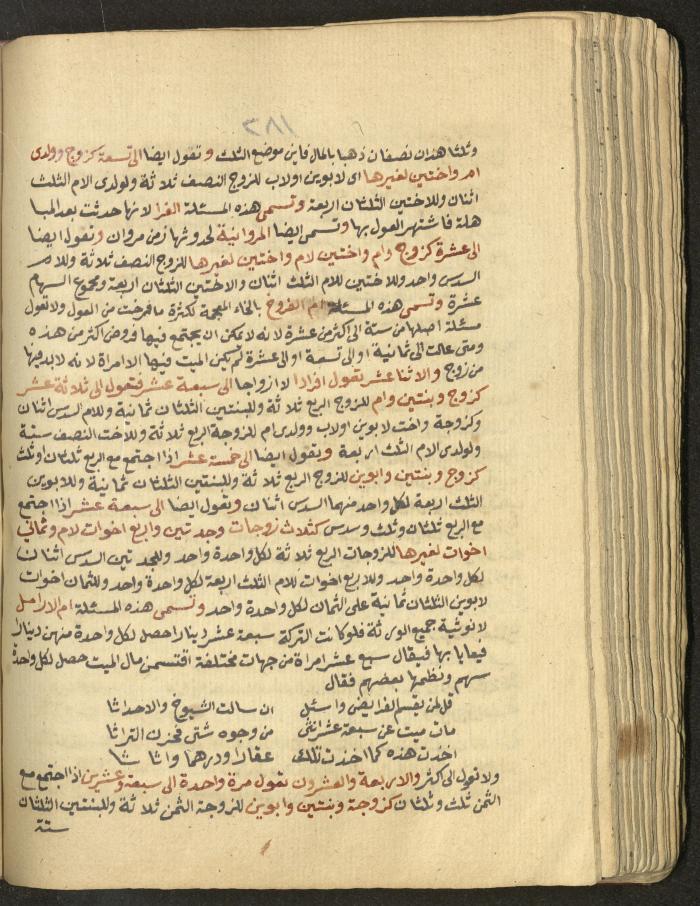 ٣٨١
وثلثا هذان نصفان ذهبا بالمال فاين موضع الثلث وتقول ايضا الى تسعة كزوج وولدى
ام واختين لغيرها اى لابوين اولاب للزوج النصف ثلاثة ولولدى الام الثلث
اثنان وللاختين الثلثان اربعة وتسمى هذه المسئلة الغرا لانها حدثت بعد المبا
هلة فاشتهر العول بها وتسمى ايضا المروانية لحدوثها زمن مروان وتقول ايضا
الى عشرة كزوج وام واختين لام واختين لغيرها للزوج النصف ثلاثة وللام
السدس واحد وللاختين للام الثلث اثنان والاختين الثلثان اربعة ومجموع السهام
عشرة وتسمى هذه المسئلة ام الفروخ بالخاء المعجمة لكثرة ما فرخت من العول ولا تعول
مسئلة اصلها من ستة الى اكثر من عشرة لانه لا يمكن ان يجتمع فيها فروض اكثر من هذه
ومتى عالت الى ثمانية او الى تسعة او الى عشرة لم يكن الميت فيها الا امراة لانه لا بد فيها
من زوج والاثنا عشر تعول افرادا لا ازواجا الى سبعة عشر فتعول الى ثلاثة عشر
كزوج وبنتين وام للزوج الربع ثلاثة وللبنتين الثلثان ثمانية وللام السدس اثنان
وكزوجة واخت لابوين اولاب وولدى ام للزوجة الربع ثلاثة وللاخت النصف ستة
ولولدى الام الثلث اربعة وتقول ايضا الى خمسة عشر اذا اجتمع مع الربع ثلثان وثلث
كزوج وبنتين وابوين للزوج الربع ثلاثة وللبنتين الثلثان ثمانية وللابوين
الثلث اربعة لكل واحد منهما السدس اثنان وتقول ايضا الى سبعة عشر اذا اجتمع
مع الربع ثلثان وثلث وسدس كثلاث زوجات وجدتين واربع اخوات لام وثماني
اخوات لغيرها للزوجات الربع ثلاثة لكل واحدة واحد وللجدتين السدس اثنان
لكل واحدة واحد وللاربع اخوات للام الثلث اربعة لكل واحدة واحد وللثمان اخوات
لابوين الثلثان ثمانية على الثمان لكل واحدة واحد وتسمى هذه المسئلة ام الارامل
لانوثية جميع الورثة فلو كانت التركة سبعة عشر دينارا حصل لكل واحدة منهن دينار
فيعايا بها فيقال سبع عشر امراة من جهات مختلفة اقتسمن مال الميت حصل لكل واحدة
سهم ونظمها بعضهم فقال
قل لمن يقسم الفرايض واسئل ان سالت الشيوخ والاحداثا
مات ميت عن سبعة عشر انثى من وجوه شتى فحزن التراثا
اخذت هذه كما اخذت تلك عقارا ودرهما واثاثا
ولا تعول الى اكثر والاربعة والعشرون تعول مرة واحدة الى سبعة وعشرين اذا اجتمع مع
الثمن ثلث وثلثان كزوجة وبنتين وابوين للزوجة الثمن ثلاثة وللبنتين الثلثان
ستة